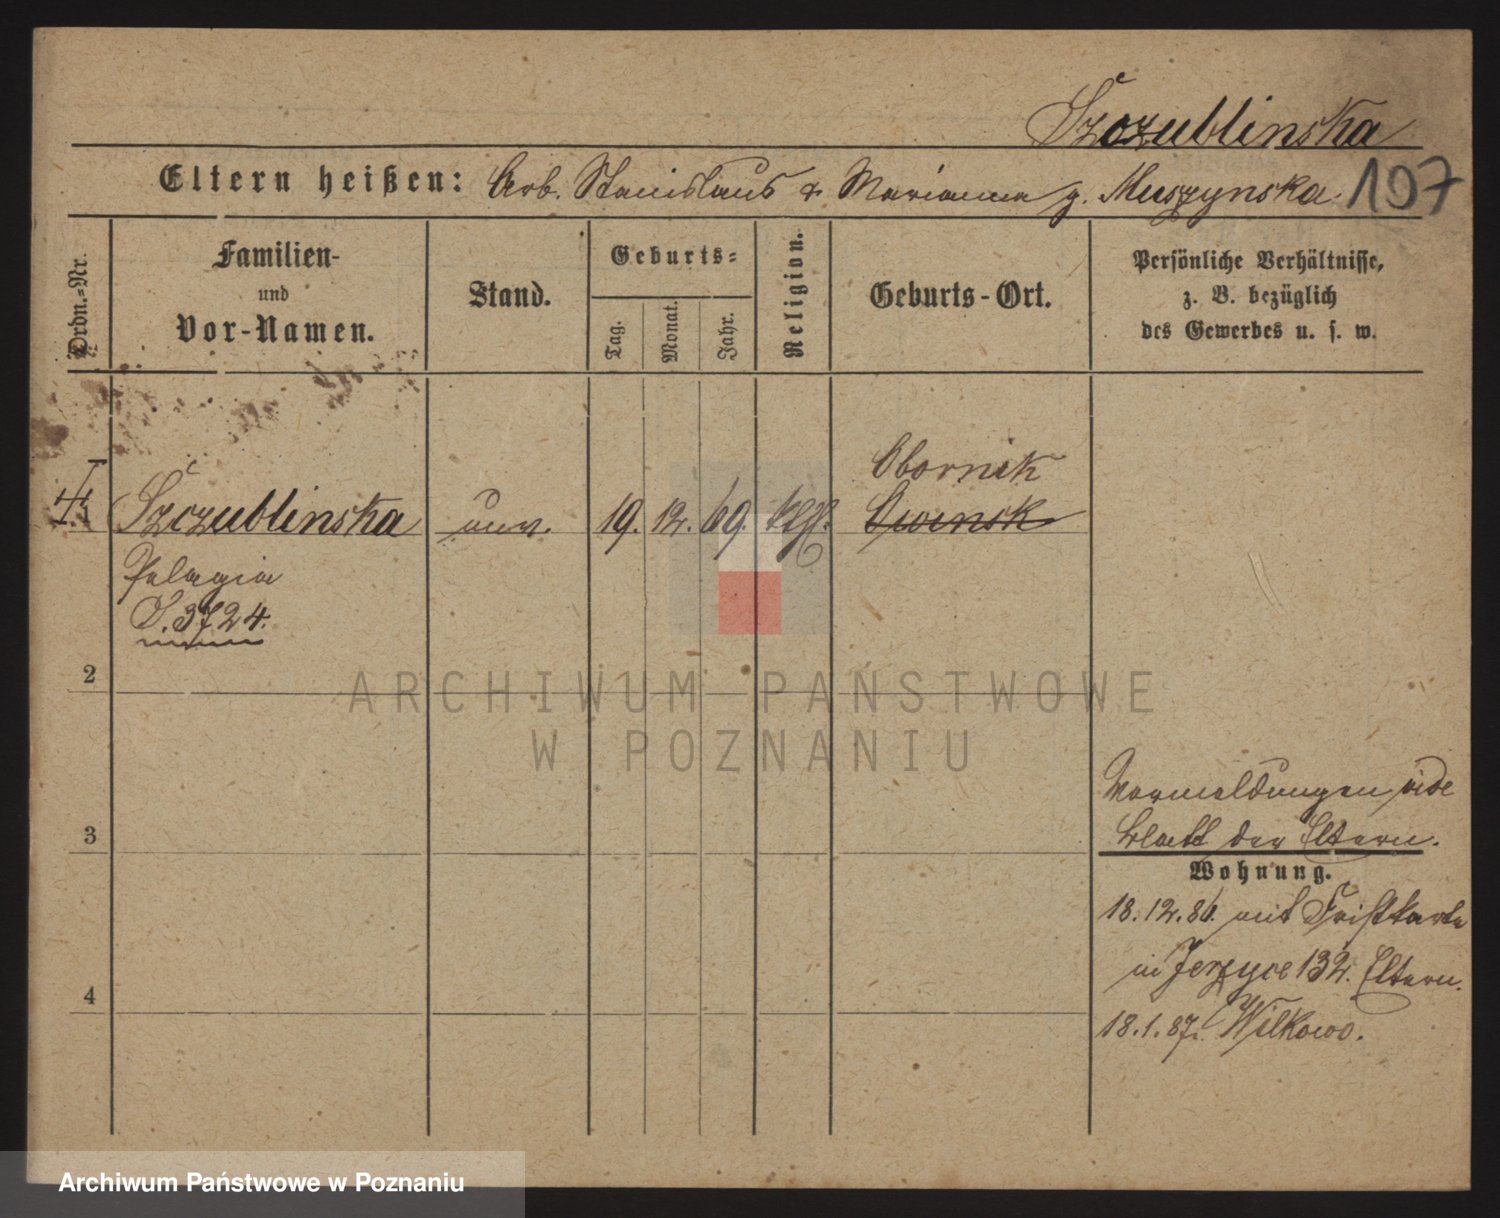 Szczublinska
Eltern heißen: Arb. Stanislaus & Marianna g. Muszynska.
197
Ordn.-Nr.
Familien-
und
Vor-Namen.
Stand.
Geburts-
Tag.
Monat.
Jahr.
Religion.
Geburts-Ort.
Persönliche Verhältnisse,
z. B. bezüglich
des Gewerbes u. s. w.
Obornik
Szczublinska unv. 19. 12. 69. kth. Owinsk
Pelagia
J. 3724.
2
3
4
Vormeldungen vide
Blatt der Eltern.
Wohnung.
18.12.86. mit Fristkarte
in Jerzyce 132. Eltern.
18.1.87. Wilkowo.
ARCHIWUM PAŃSTWOWE
W POZNANIU
Archiwum Państwowe w Poznaniu